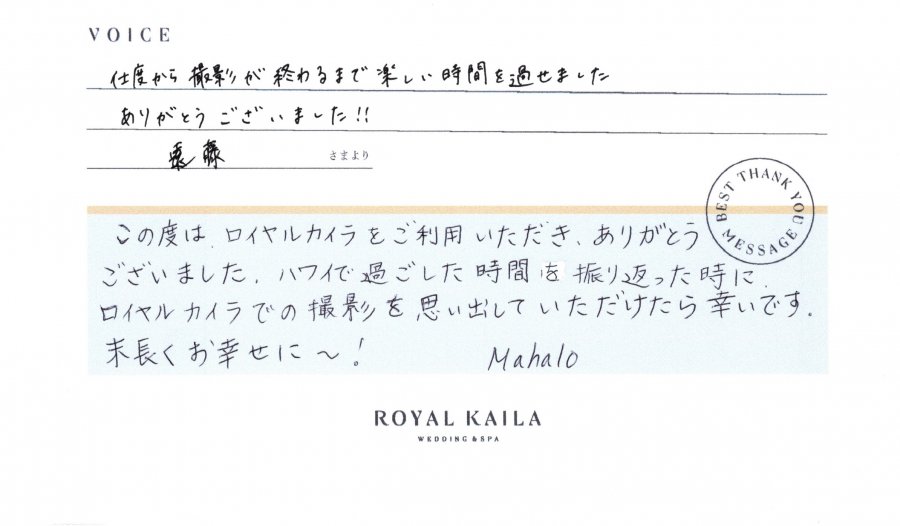 VOICE
仕度から撮影が終わるまで楽しい時間を過せました
ありがとうございました!!
遠藤 さまより
BEST THANK YOU MESSAGE
この度は、ロイヤルカイラをご利用いただき、ありがとう
ございました。ハワイで過ごした時間を振り返った時に、
ロイヤルカイラでの撮影を思い出していただけたら幸いです。
末長くお幸せに〜!
Mahalo
ROYAL KAILA
WEDDING & SPA